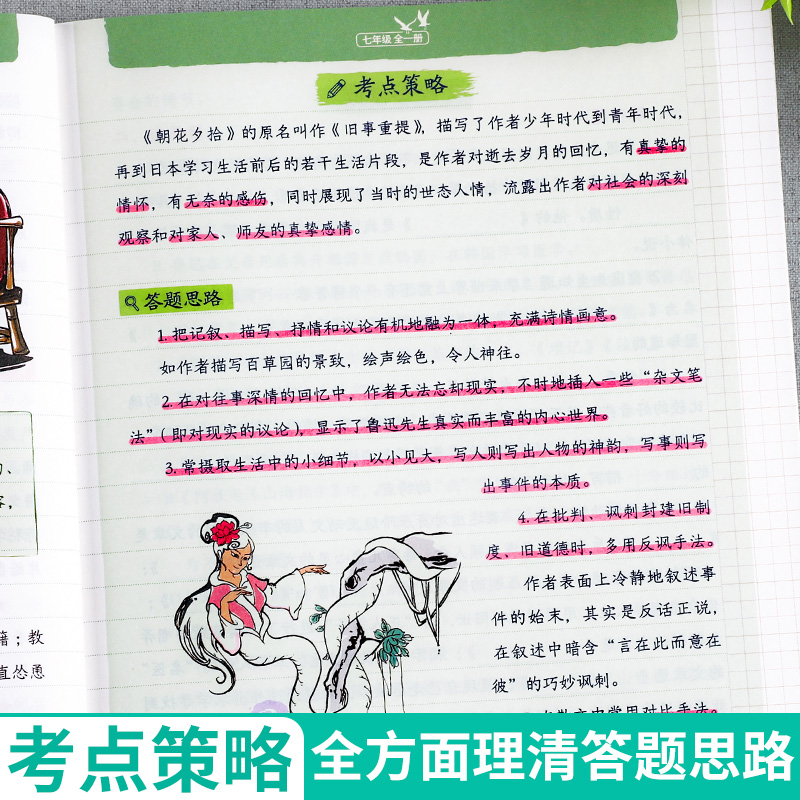 七年级 全一册
考点策略
《朝花夕拾》的原名叫作《旧事重提》，描写了作者少年时代到青年时代，
再到日本学习生活前后的若干生活片段，是作者对逝去岁月的回忆，有真挚的
情怀，有无奈的感伤，同时展现了当时的世态人情，流露出作者对社会的深刻
观察和对家人、师友的真挚感情。
答题思路
1. 把记叙、描写、抒情和议论有机地融为一体，充满诗情画意。
如作者描写百草园的景致，绘声绘色，令人神往。
2. 在对往事深情的回忆中，作者无法忘却现实，不时地插入一些“杂文笔
法”（即对现实的议论），显示了鲁迅先生真实而丰富的内心世界。
3. 常摄取生活中的小细节，以小见大，写人则写出人物的神韵，写事则写
出事件的本质。
4. 在批判、讽刺封建旧制
度、旧道德时，多用反讽手法。
作者表面上冷静地叙述事
件的始末，其实是反话正说，
在叙述中暗含“言在此而意在
彼”的巧妙讽刺。
中常用对比手法。
籍；教
直怂恿
考点策略 全方面理清答题思路